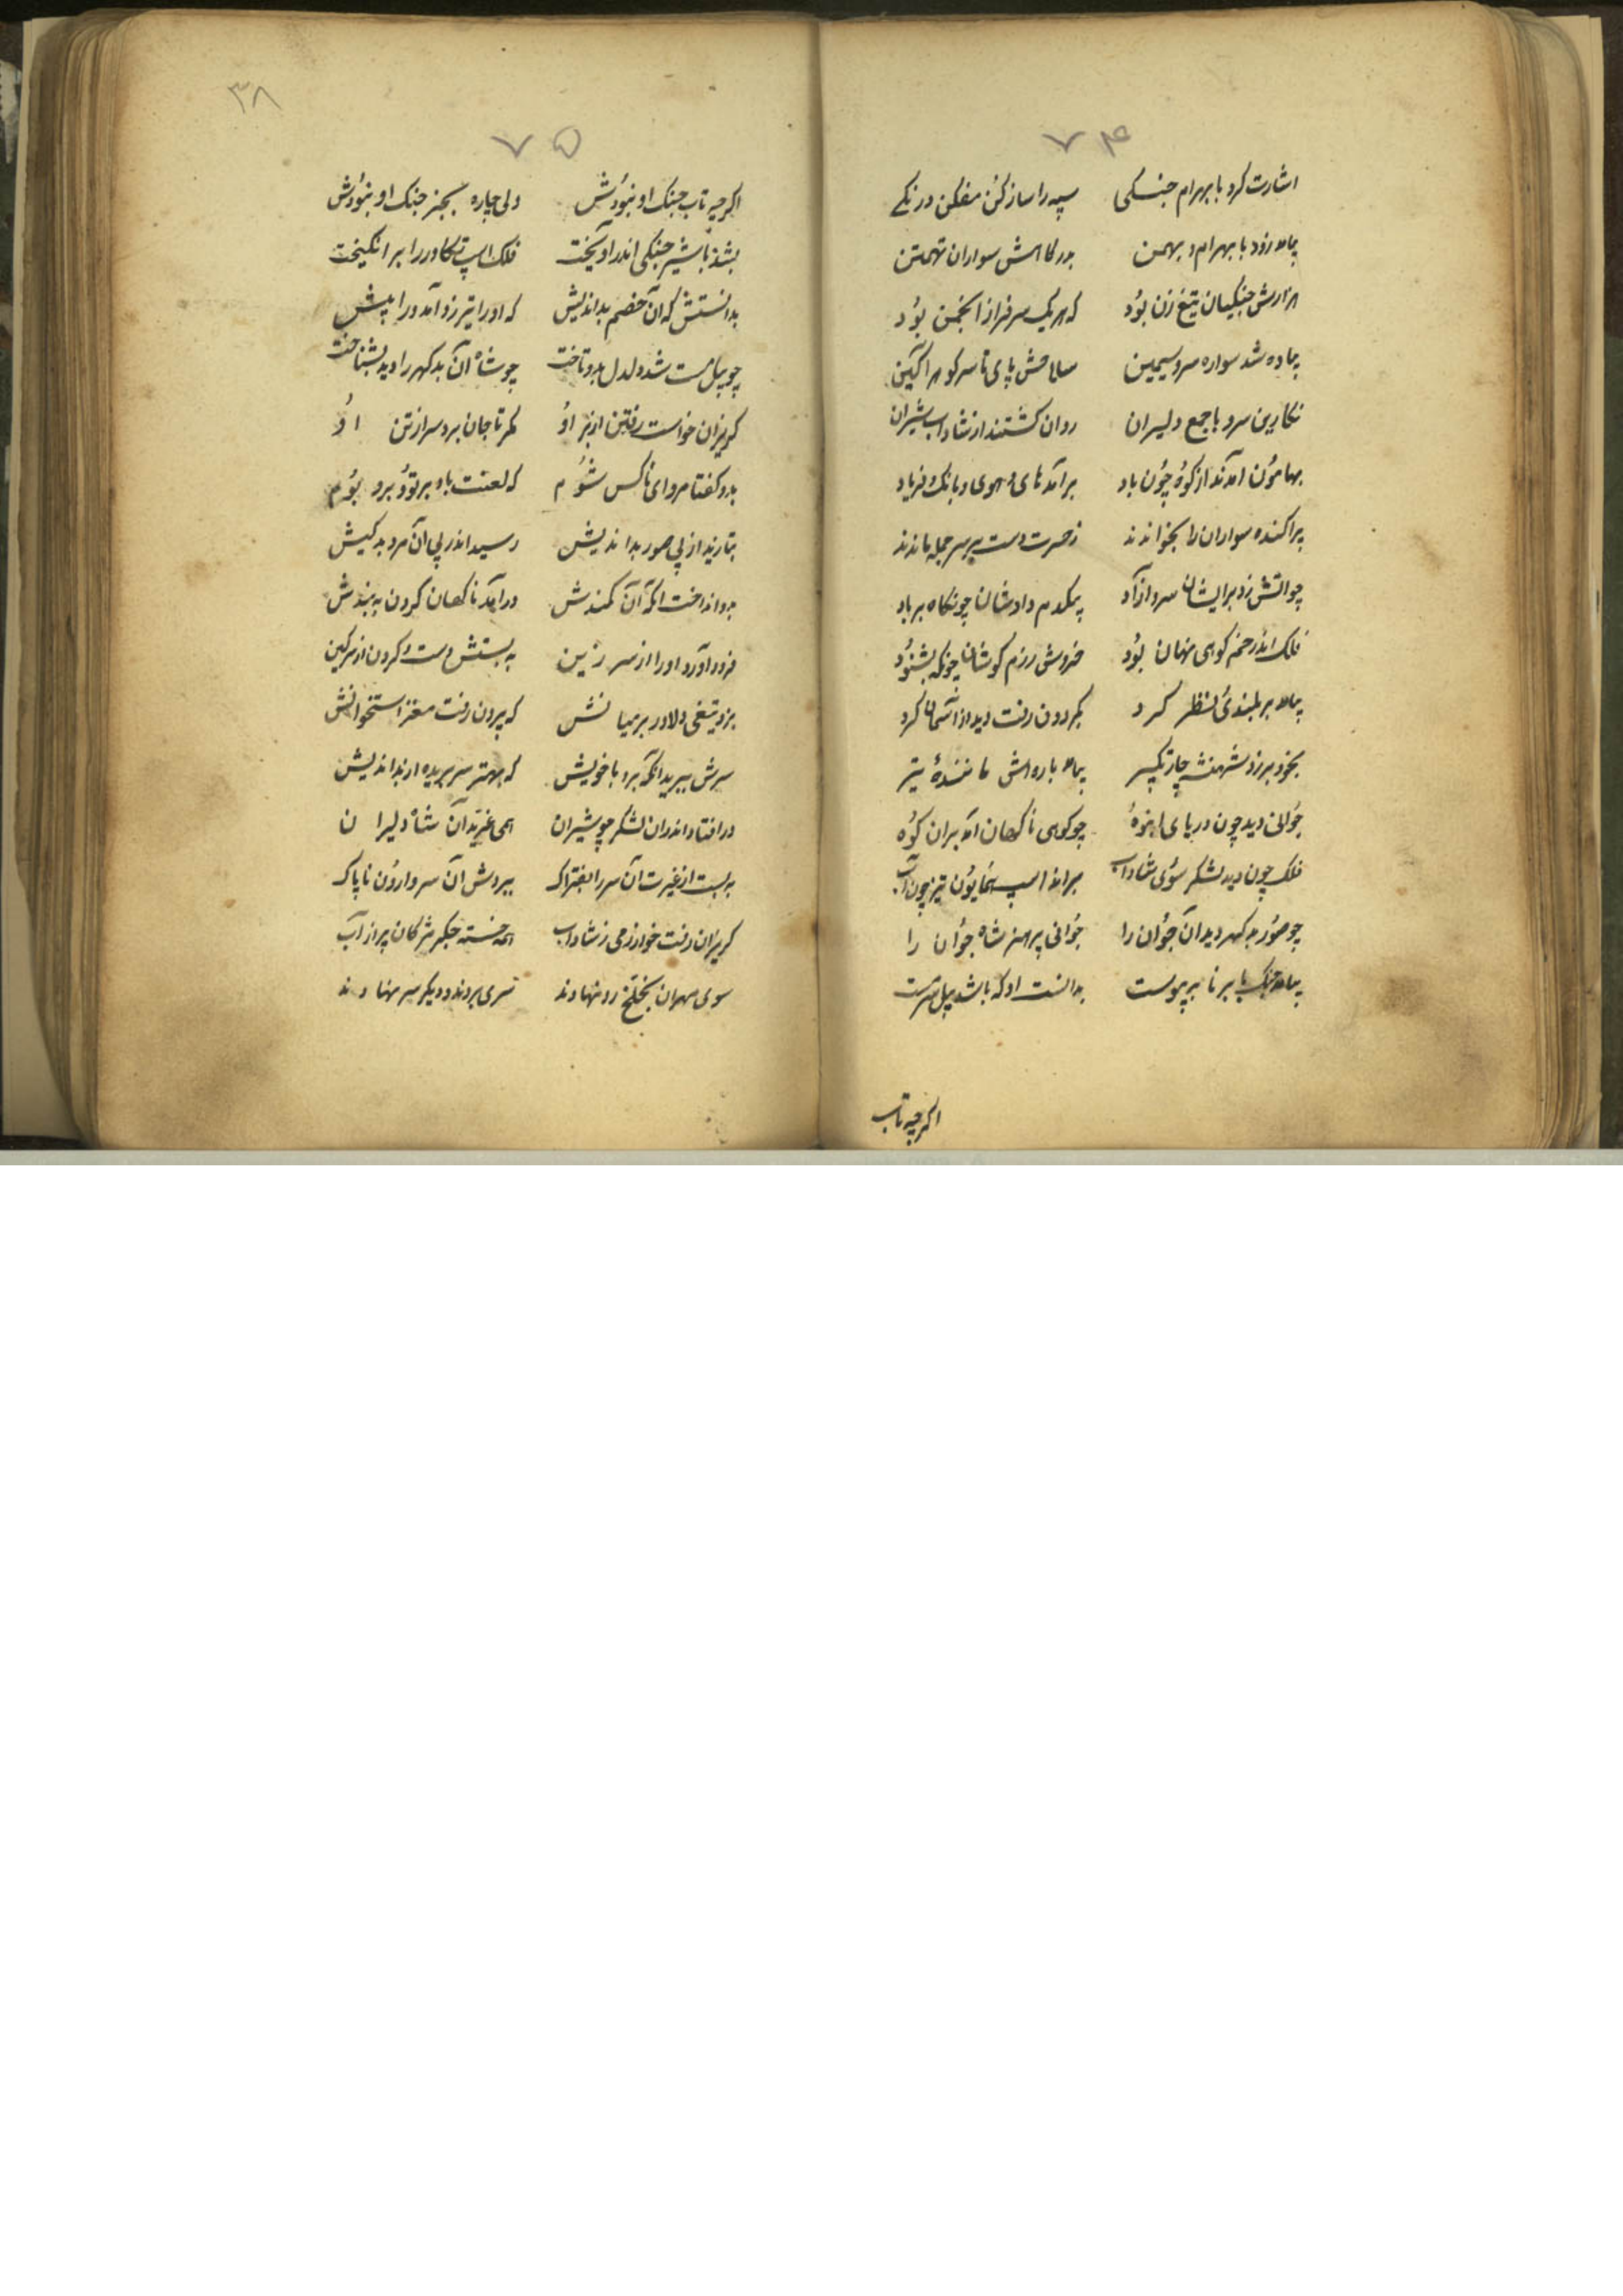 ۷۴
اشارت کرد با بهرام جنکی سپه را ساز کن مفکن درنکے
بیامد زود با بهرام و بهمن بدرکاهش سواران تهمتن
هزارش جنکیان تیغ زن بود که هر یک سرفراز انجمن بود
پیاده شد سواره سرو سیمین سلاحش پای تا سر کوهر آکین
نکارین سرو با جمع دلیران روان کشتند از شاداب شیران
بهامون آمدند از کوه چون باد برآمد های و هوی و بانک و فریاد
پراکنده سواران را بخواندند ز حسرت دست بر سر جمله ماندند
چو آتش زد بر ایشان سرو آزاد بیکدم دادشان چون کاه بر باد
فلک اندر خم کوهی نهان بود خروش رزم کوشان چونکه بشنود
بیامد بر بلندی نظر کرد بکردون رفت دید از آسمان کرد
بخود برزد شهنشه چار تکبیر بیامد باره اش مانندهٔ تیر
جوانی دید چون دریای انبوه چو کوهی ناکهان آمد بران کوه
فلک چون دید لشکر سوی شاداب براند اسپ همایون تیز چون آب
چو صور بد کهر دید آن جوان را جوانی پر هنر شاه جوان را
بیامد جنک با برنا بپیوست بدانست او که باشد پیل سرمست
اکر چه تاب
۳۸
۷۵
اکر چه تاب جنک او نبودش ولی چاره بجز جنک او نبودش
بشد با شیر جنکی اندر آویخت فلک اسپ تکاور را برانکیخت
بدانستش که آن خصم بداندیش که او را تیر زد آمد ورا پیش
چو پیل مست شد دلدل بدو تاخت چو شاه آن بد کهر را دید بشناخت
کریزان خواست رفتن از بر او مکر تا جان برد سر از تن او
بدو کفتا مرو ای ناکس شوم که لعنت باد بر تو و برو بوم
بتازید از پی صور بداندیش رسید اندر پی آن مرد بد کیش
بدو انداخت آنکه آن کمندش درآمد ناکهان کردن به بندش
فرود آورد او را از سر زین به بستش دست و کردن از سر کین
بزد تیغی دلاور بر میانش که بیرون رفت مغز استخوانش
سرش ببرید آنکه برد با خویش که بهتر سر بریده از بداندیش
در افتاد اندران لشکر چو شیران همی غرید آن شاه دلیران
به بست از غیرت آن سر را بفتراک ببردش آن سر وارون ناپاک
کریزان رفت خوارزمی ز شاداب همه خسته جکر مژکان پر از آب
سوی مهران بخلخ رو نهادند سری بردند و دیکر سر نهادند